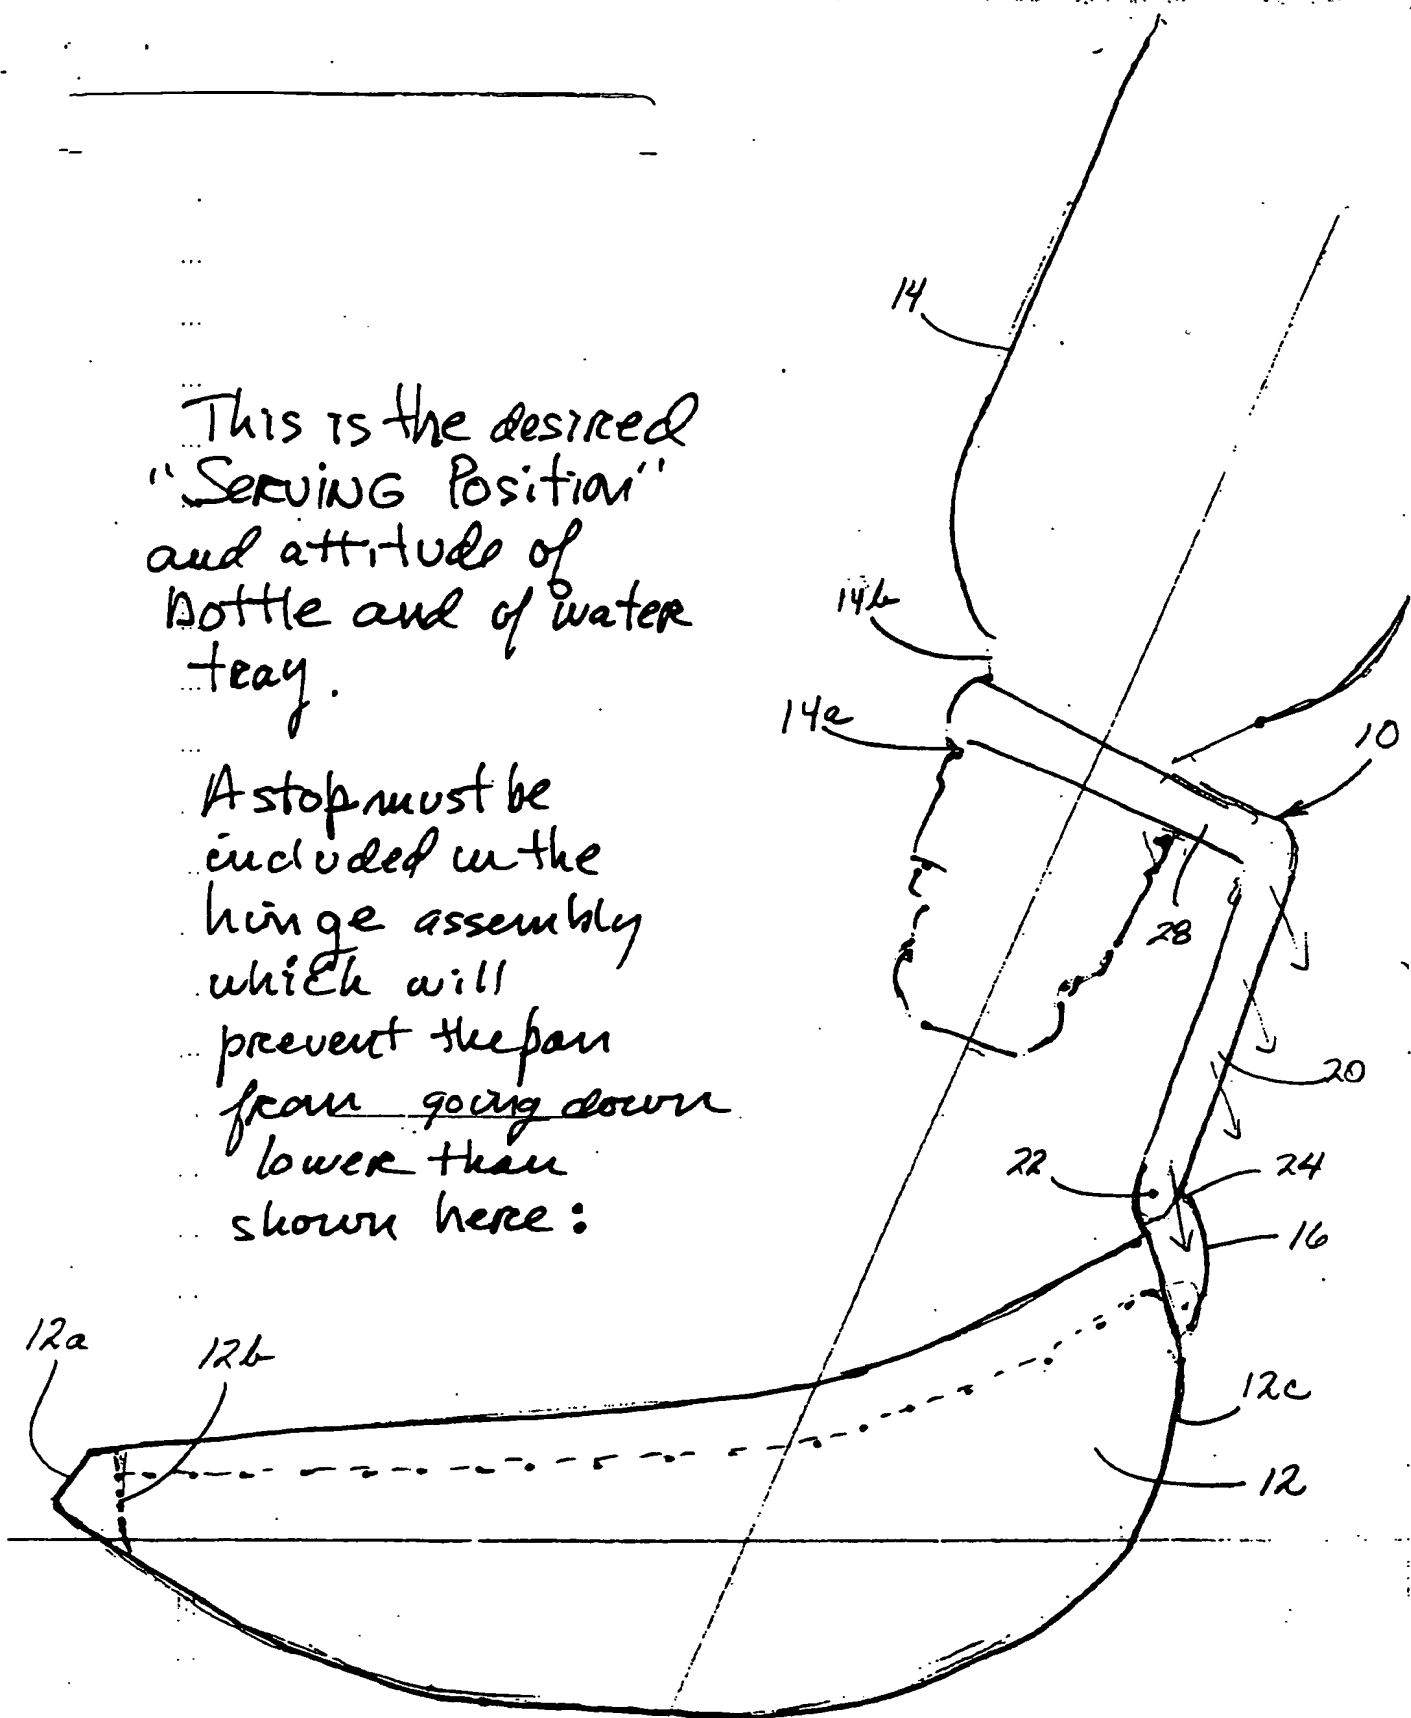 14
This is the desired
"SERVING Position"
and attitude of
bottle and of water
tray.
14b
14a
10
A stop must be
included in the
hinge assembly
which will
prevent the pan
from going down
lower than
shown here:
28
20
22
24
16
12a
12b
12c
12